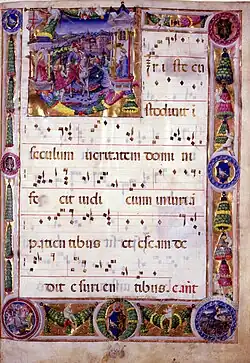 i ste cu
stodiuit i
seculum ueritatem domi ni
fe cit iudi cium iniuria
patien tibus et escam de
dit e suri en tibus. cant